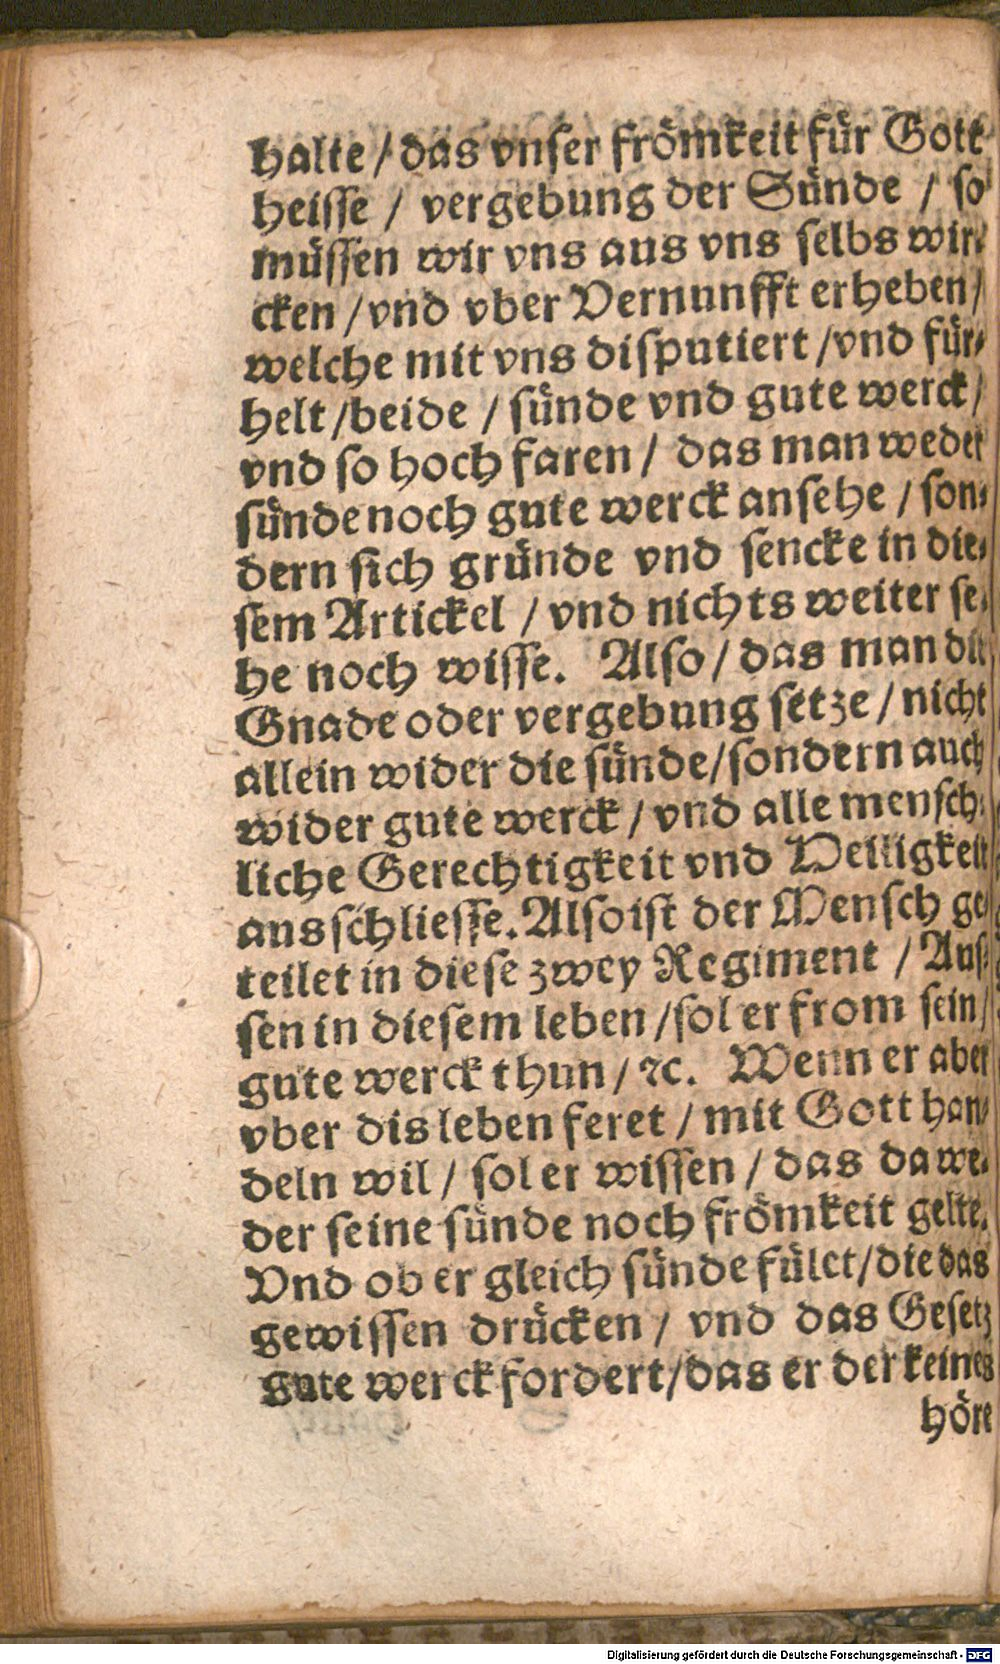 halte / das vnser frömkeit für Gott
heisse / vergebung der Sünde / so
müssen wir vns aus vns selbs wir-
cken / vnd vber Vernunfft erheben /
welche mit vns disputiert / vnd für-
helt / beide / sünde vnd gute werck /
vnd so hoch faren / das man weder
sünde noch gute werck ansehe / son-
dern sich gründe vnd sencke in die-
sem Artickel / vnd nichts weiter se-
he noch wisse. Also / das man die
Gnade oder vergebung setze / nicht
allein wider die sünde / sondern auch
wider gute werck / vnd alle mensch-
liche Gerechtigkeit vnd Heiligkeit
ausschliesse. Also ist der Mensch ge-
teilet in diese zwey Regiment / Aus-
sen in diesem leben / sol er from sein /
gute werck thun / ꝛc. Wenn er aber
vber dis leben feret / mit Gott han-
deln wil / sol er wissen / das da we-
der seine sünde noch frömkeit gelte.
Vnd ob er gleich sünde fület / die das
gewissen drücken / vnd das Gesetz
gute werck fordert / das er der keines
höre
Digitalisierung gefördert durch die Deutsche Forschungsgemeinschaft - DFG